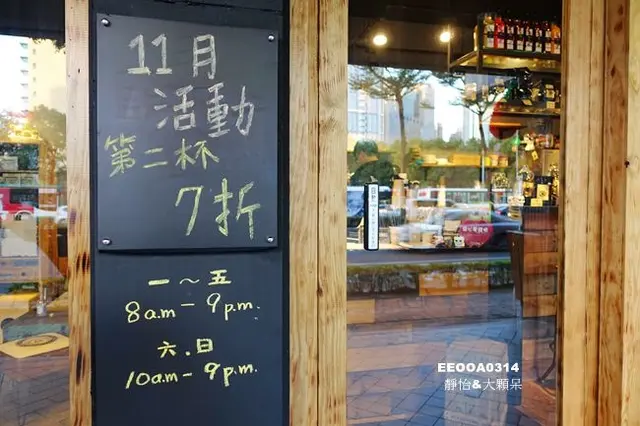 11月
活動
第二杯
7折
一～五
8a.m－9p.m.
六.日
10a.m－9p.m.
EEOOA0314
靜怡&大顆呆